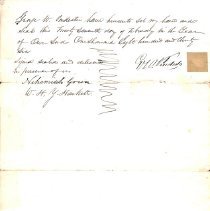 George W. have hereunto set my hand and
Seal this Twenty Seventh day of February in the Year
of Our Lord One thousand Eight hundred and thirty
Six
Signed Sealed and delivered
in presence of us
Nehemiah
W. H. Y. Hackett